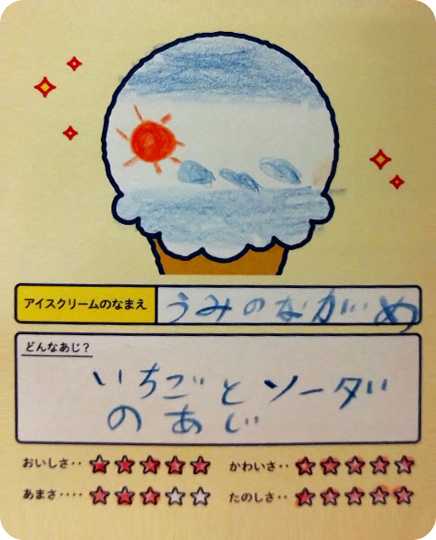 アイスクリームのなまえ
うみのながめ
どんなあじ?
いちごとソーダ
のあじ
おいしさ‥
かわいさ‥
あまさ‥‥
たのしさ‥